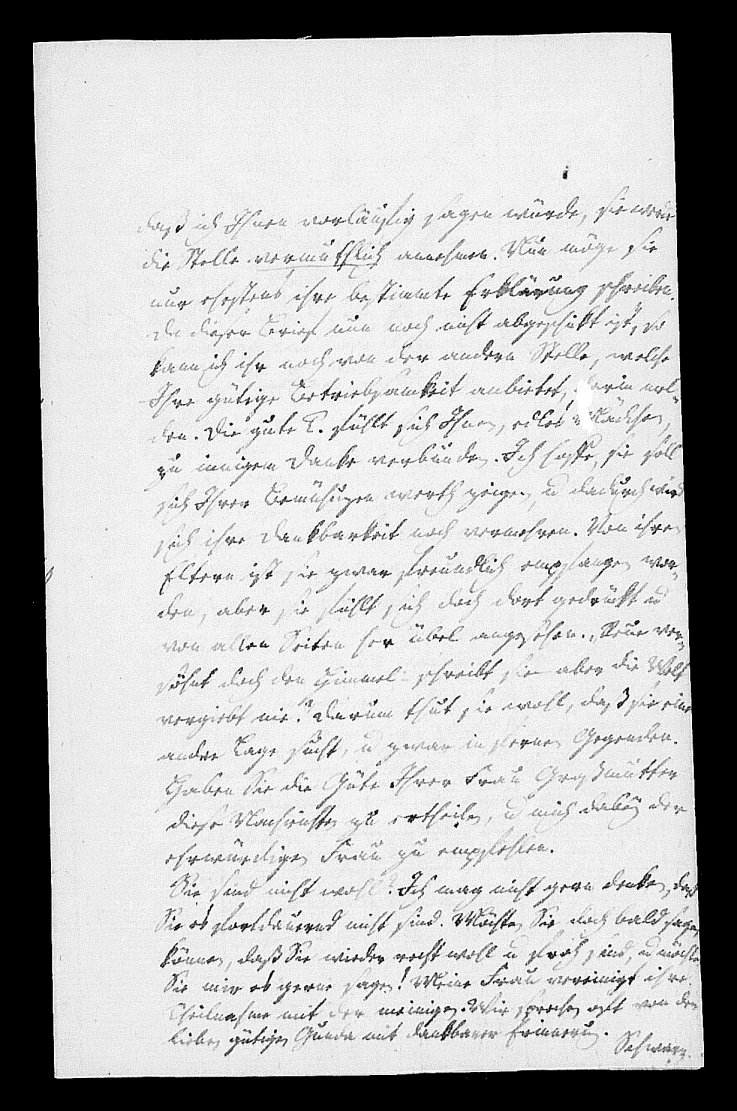 daß ich Ihnen vorläufig sagen würde, sie werde
die Stelle vermuthlich annehmen. Nun möge sie
nur ehestens ihre bestimmte Erklärung schreiben.
Da dieser Brief nun noch nicht abgeschikt ist, so
kann ich ihr noch von der andern Stelle, welche
Ihre gütige Betriebsamkeit anbietet, darin mel-
den. Die gute L. fühlt sich Ihnen, edles Mädchen,
zu innigem Danke verbunden. Ich hoffe, sie soll
sich Ihrer Bemühungen werth zeigen, u dadurch wird
sich ihre Dankbarkeit noch vermehren. Von ihren
Eltern ist sie zwar freundlich empfangen wor-
den, aber sie fühlt sich doch dort gedrückt u
von allen Seiten her übel angesehen. „Reue ver-
söhnt doch den Himmel - schreibt sie - aber die Welt
vergiebt nie." Darum thut sie wohl, daß sie eine
andre Lage sucht, u zwar in fernen Gegenden.
Haben Sie die Güte Ihrer Frau Großmutter
diese Nachrichten zu ertheilen, u mich dabey der
ehrwürdigen Frau zu empfehlen.
Sie sind nicht wohl? Ich mag nicht gern denken, daß
Sie es fortdauernd nicht sind. Möchten Sie doch bald sagen
können, daß Sie wieder recht wohl u froh sind, u möchten
Sie mir es gerne sagen! Meine Frau vereinigt ihre
Theilnahme mit der meinigen. Wir sprechen oft von der
lieben gütigen Gunda mit dankbarer Erinnerung.
Schwarz.